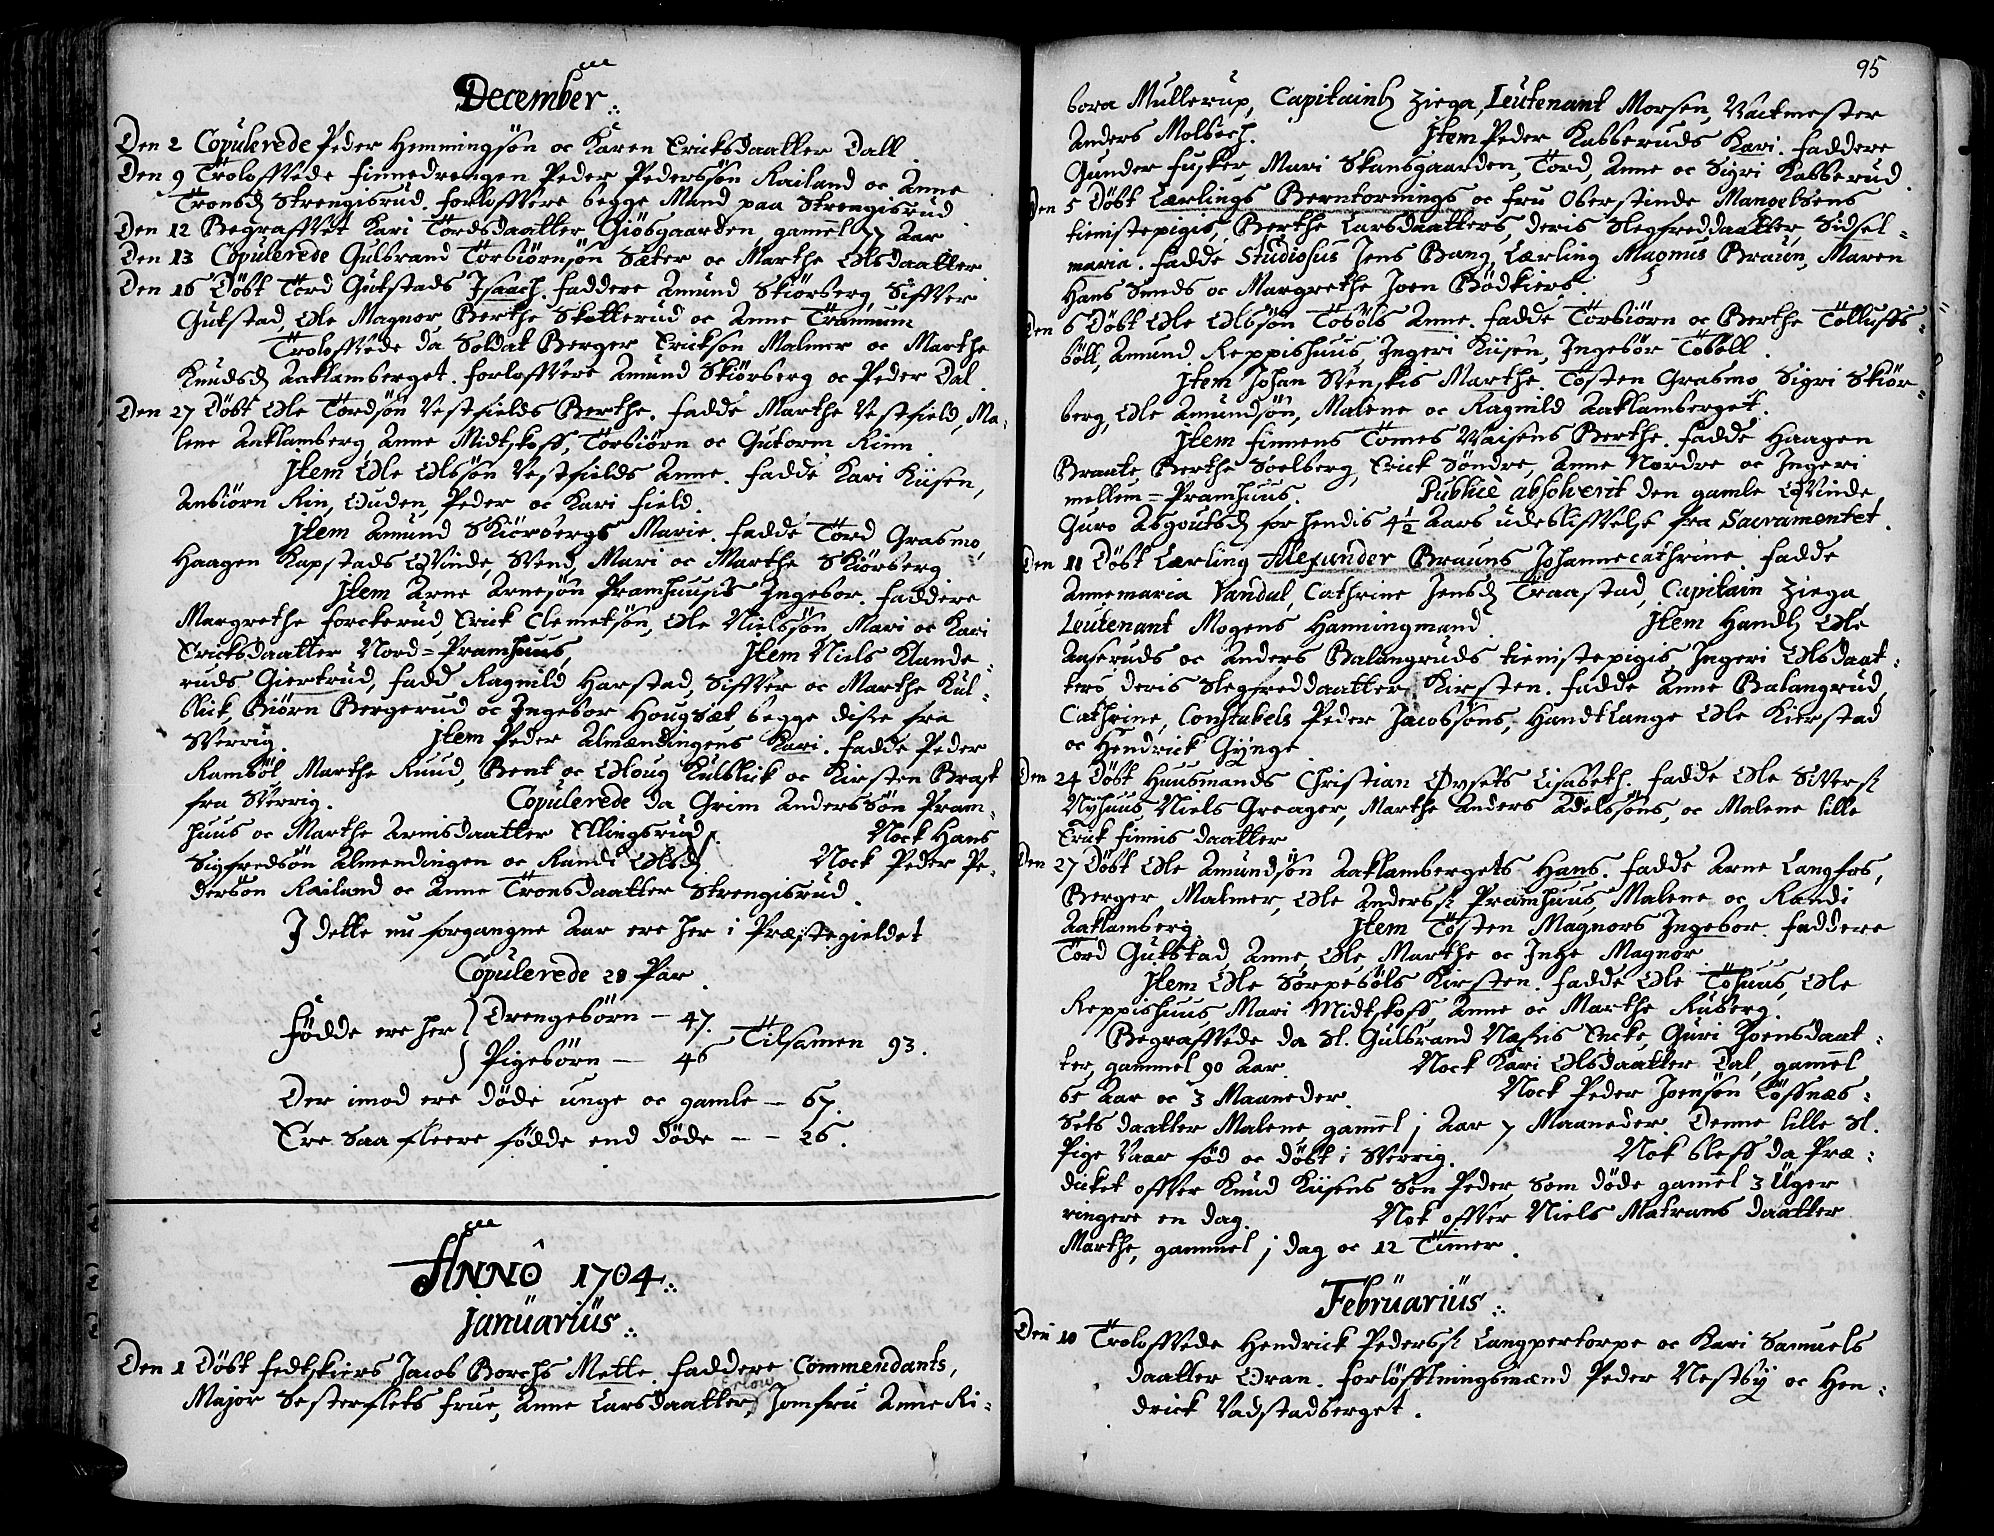 December
Den 2 Copulerede Peder Hemmingsön oc Karen Ericksdaatter Dall.
Den 9 Troloffvede finnedrengen Peder Pedersön Railand oc Anne
Tronsd. Strengisrud. forloffvere begge Mænd paa Strengisrud
Den 12 Begraffvet Kari Tordsdaatter Giösgaarden, gamel 77 Aar
Den 13 Copulerede Gulbrand Torbiörnsön Sæter oc Marthe Olsdaatter
Den 16 Döbt Tord Gutstads Isaach. faddere Amund Skiörberg, Siffver
Gutstad, Ole Magnor Berthe Skotterud oc Anne Trannum
Troloffvede da Soldat Berger Ericksön Malmer oc Marthe
Knudsd. Aaklamberget. forloffvere Amund Skiörberg oc Peder Dal.
Den 27 Döbt Ole Tordsön Vestfields Berthe. fadde Marthe Vestfield, Ma-
lene Aaklamberg, Anne Midtskoff, Torbiörn oc Gutorm Rinn.
Item Ole Olsön Vestfields Anne. fadde Kari Kiisen,
Anbiörn Rin, Ouden, Peder oc Kari field.
Item Amund Skiörbergs Marie. fadde Tord Grasmo,
Haagen Kapstads Qvinde, Svend, Mari oc Marthe Skiörberg
Item Arne Arnesön Pramhuusis Ingebor. faddere
Margrethe forckerud, Erick Clemetsön, Ole Nielssön, Mari oc Kari
Ericksdaatter Nord=Pramhuus, Item Niels Klande-
ruds Giertrud, fadd Ragnild Harstad, Siffver oc Marthe Kul-
blick, Biörn Bergerud oc Ingebor Hougsæt begge disse fra
Sverrig. Item Peder Almændingens Kari. fadde Peder
Ramböl, Marthe Ruud, Bent oc Oloug Kulblick oc Kirsten Brast
fra Sverrig. Copulerede da Grim Anderssön Pram-
huus oc Marthe Arnisdaatter Ellingsrud. Nock Hans
Sigfredsön Almendingen oc Randi Olsd. Nock Peder Pe-
dersön Railand oc Anne Tronsdaatter Strengisrud.
I dette nu forgangne Aar ere her i Præstegieldet
Copulerede 28 Par.
födde ere her } Drengebörn — 47. Tilsamen 93.
Pigebörn — 46
Der imod ere döde unge oc gamle — 67.
Ere saa fleere födde end döde — — 26.
ANNO 1704
Januarius
Den 1 Döbt fedtskiers Jacob Borchs Mette. faddere Commendants,
Major Sesterflets frue, Anne Larsdaatter, Jomfru Anne Ri-
95
bora Mullerup, Capitaine Ziega, Leutenant Morsen, Vactmester
Anders Molbech. Item Peder Kabberuds Kari. faddere
Gunder fusker, Mari Skansgaarden, Tord, Anne oc Sigri Kabberud.
Den 5 Döbt Lærlings Berntornings oc fru Oberstinde Mangelsens
tienistepigis, Berthe Larsdaatters, deris Slegfreddaatter, Sidsel-
maria. fadde Studiosus Jens Bang, Lærling Magnus Braun, Maren
Hans Smeds oc Margrethe Joen Bödkiers
Den 6 Döbt Ole Olssön Toböls Anne. fadde Torbiörn oc Berthe Tolluffs-
böll, Amund Reppishuus, Ingeri Kiisen, Ingebör Töböll.
Item Johan Svenskis Marthe. Tosten Grasmo, Sigri Skiör-
berg, Ole Amundsön, Malene oc Ragnild Aaklamberget.
Item finnens Tomes Vaisens Berthe. fadde Haagen
Braate, Berthe Soelberg, Erick Söndre, Anne Nordre oc Ingeri
mellum=Pramhuus. Publicè absolverit den gamle Qvinde,
Guro Asgoutsd. for hendis 4½ Aars udebliffvelse fra Sacramentet.
Den 11 Döbt Lærling Alexander Brauns Johannecathrine. fadde
Annemaria Vandal, Cathrine Jensd. Traastad, Capitain Ziega,
Leutenant Mogens Hanningmand. Item Handl. Ole
Aaseruds oc Anders Balangruds tienistepigis, Ingeri Olsdaat-
ters deris Slegfreddaatter, Kirsten. fadde Anne Balangrud,
Cathrine, Constabels Peder Jacobsöns, Handtlange Ole Kierstad
oc Hendrick Gynge
Den 24 Döbt Huusmands Christian Öresets Lisabeth. fadde Ole Siversl.
Nyhuus, Niels Greager, Marthe Anders Adelssöns, oc Malene lille
Erick finnis daatter
Den 27 Döbt Ole Amundsön Aaklambergets Hans. fadde Arne Langfos,
Berger Malmer, Ole Anderss. Pramhuus, Malene oc Randi
Aaklamberg. Item Tosten Magnors Ingebor. faddere
Tord Gutstad, Anne, Ole Marthe oc Inge Magnor.
Item Ole Sorpeböls Kirsten. fadde Ole Töhuus, Ole
Reppishuus Mari Midtskoff, Anne oc Marthe Ruberg.
Begraffvede da Sl. Gulbrand Næssis Encke, Guri Joensdaat-
ter, gammel 90 Aar. Nock Kari Olsdaatter Dal, gamel
65 Aar oc 3 Maaneder. Nock Peder Joensön Löffnæs-
sets daatter Malene, gamel 1 Aar 7 Maaneder. Denne lille Sl.
Pige vaar föd oc döbt i Sverrig. Nok bleff da Præ-
diket offver Knud Kiisens Sön Peder, som döde gamel 3 Uger
ringere en dag. Nok offver Niels Matrans daatter
Marthe, gammel 1 dag oc 12 Timer.
Februarius
Den 10 Troloffvede Hendrick Pederss. Langpertorpe oc Kari Samuels
daatter Oran. forlöfftningsmænd Peder Nestby oc Hen-
drick Vadstadberget.